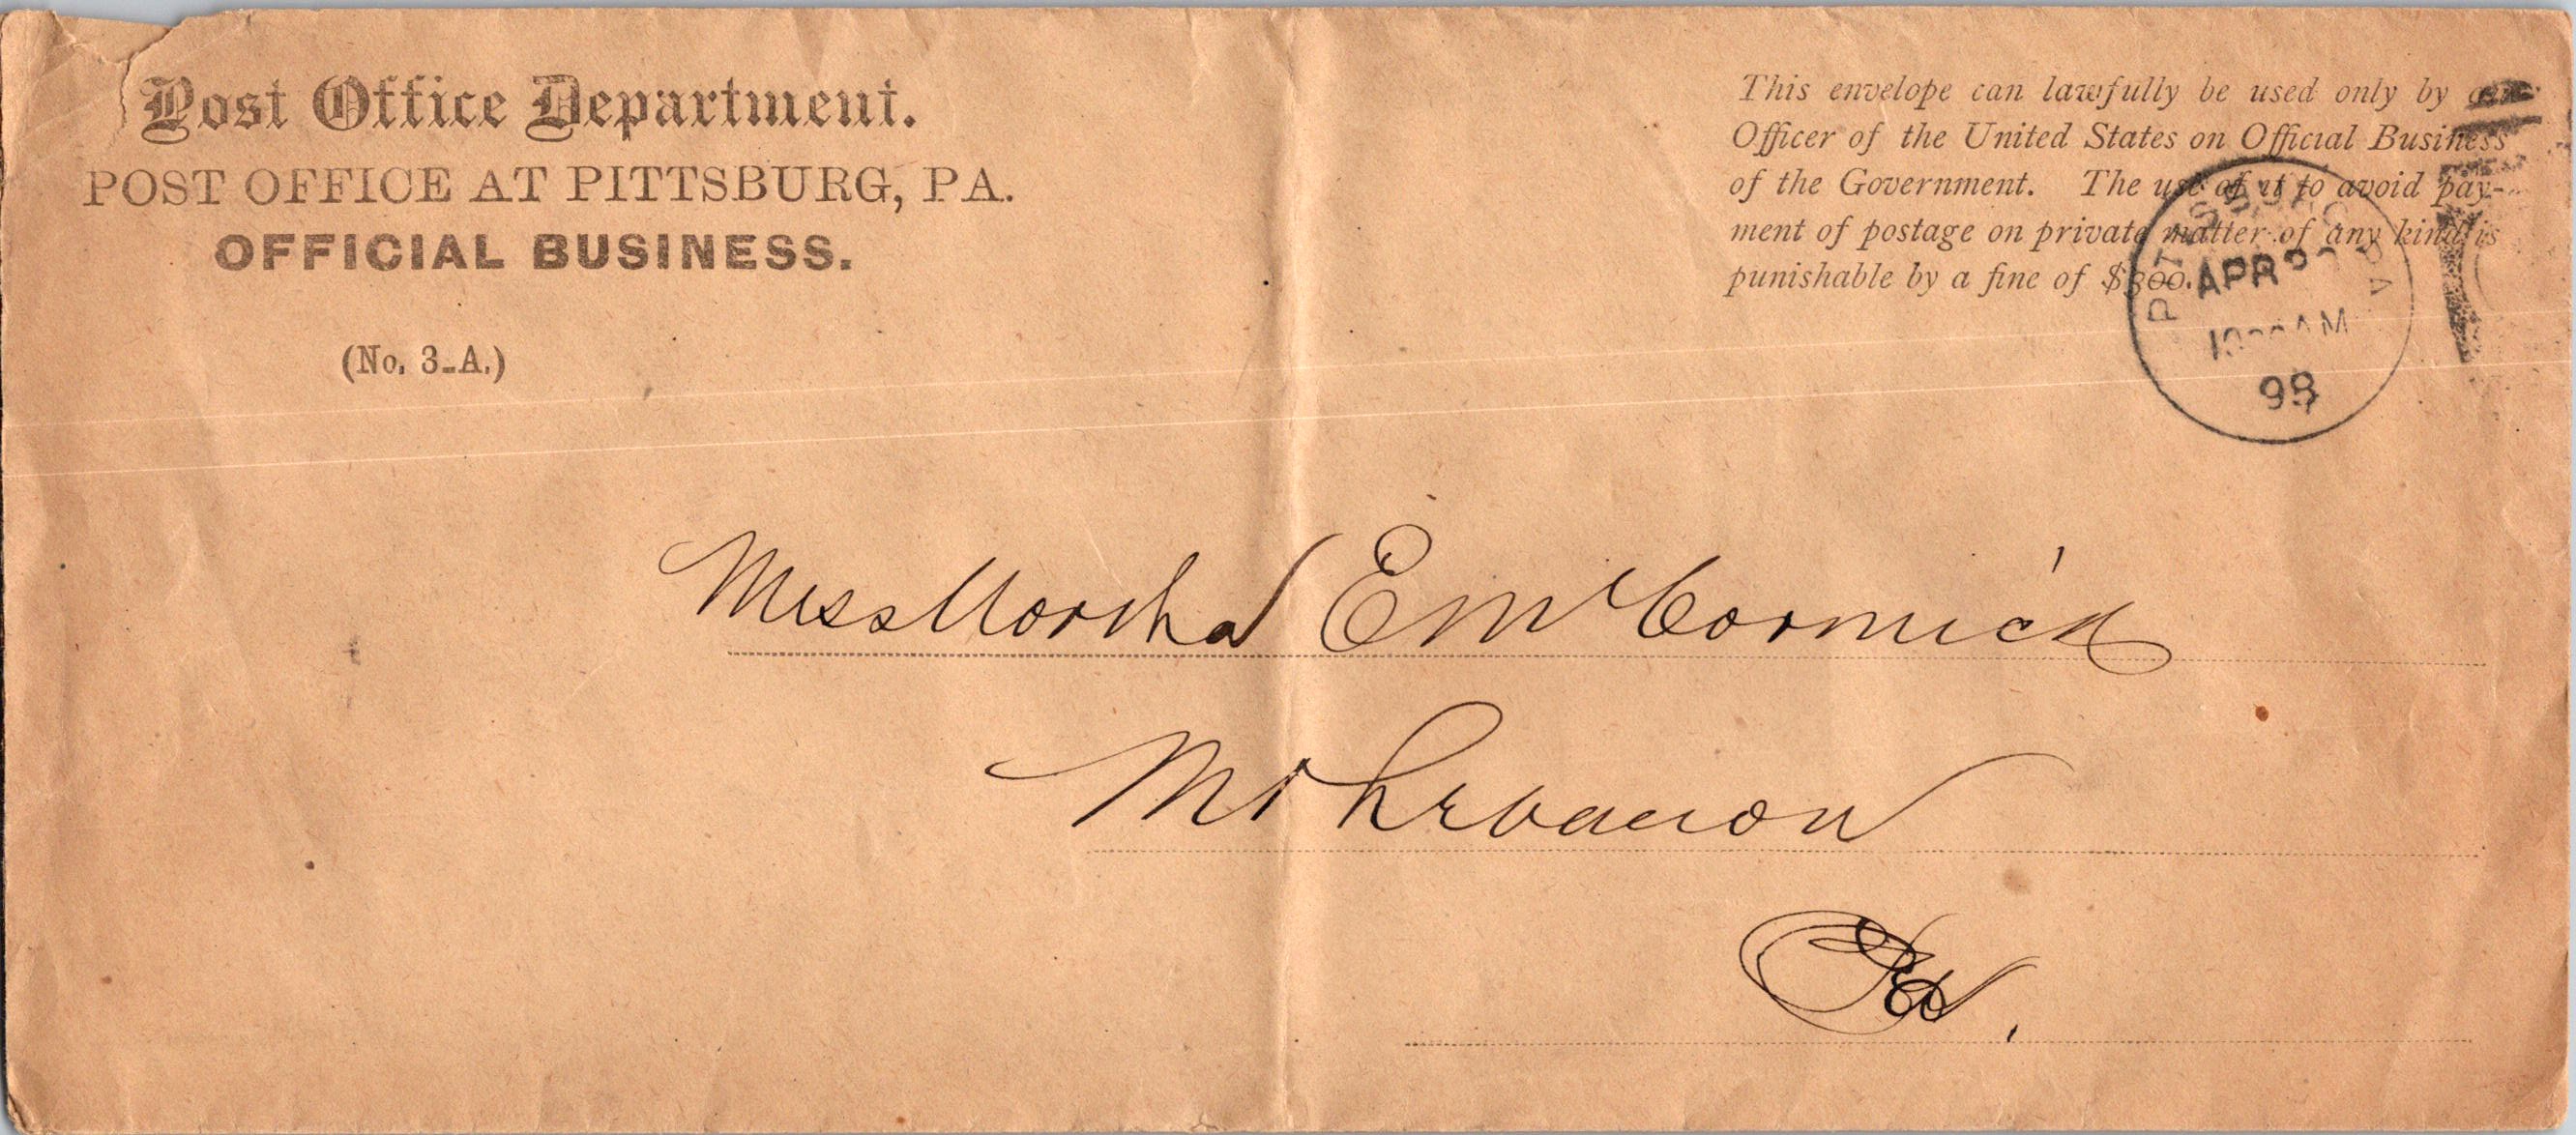 Post Office Department.
POST OFFICE AT PITTSBURG, PA.
OFFICIAL BUSINESS.
(No. 3-A.)
This envelope can lawfully be used only by an
Officer of the United States on Official Business
of the Government. The use of it to avoid pay-
ment of postage on private matter of any kind is
punishable by a fine of $300.
PITTSBURG PA
APR
AM
98
Miss Martha E McCormick
Mt Lebanon
Pa.